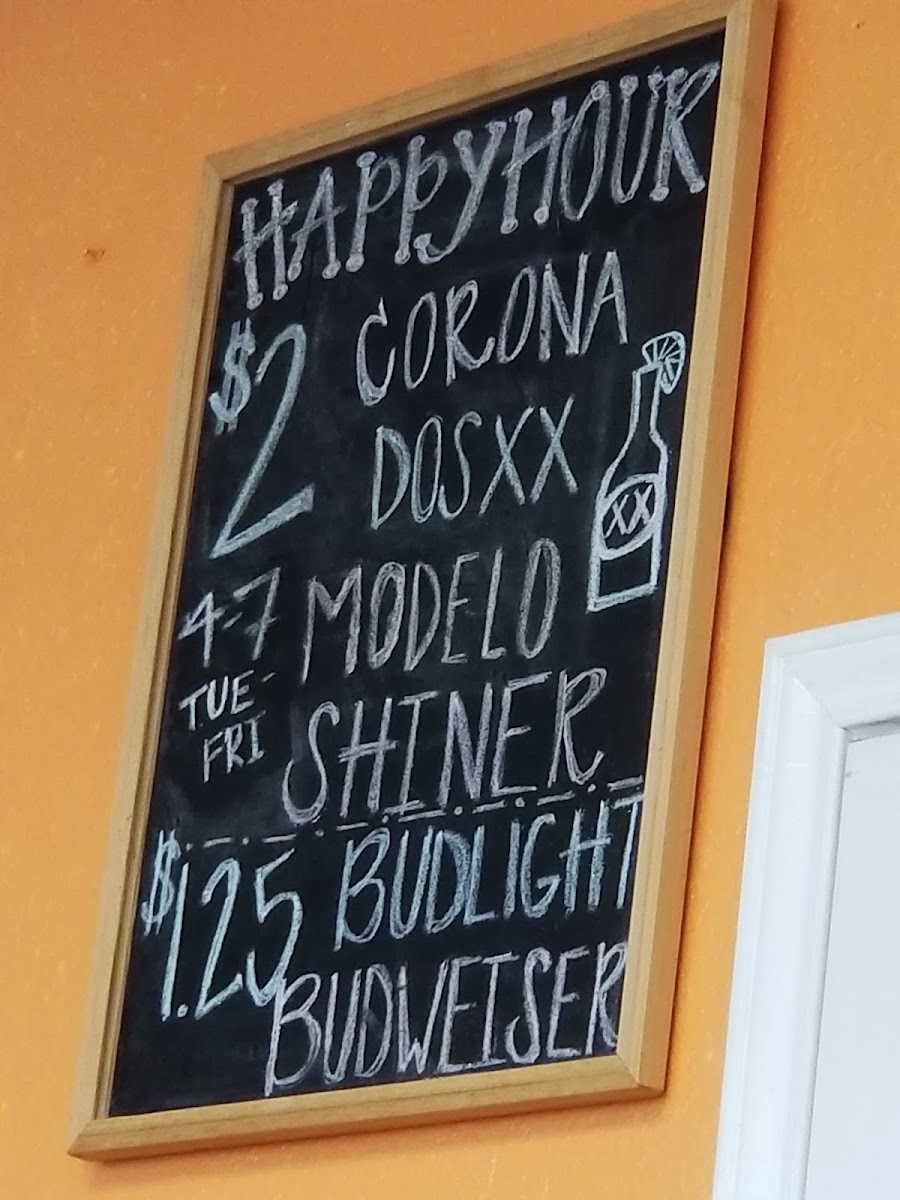 HAPPY HOUR
$2 CORONA
DOS XX
XX
4-7 MODELO
TUE-
FRI
SHINER
$1.25 BUDLIGHT
BUDWEISER